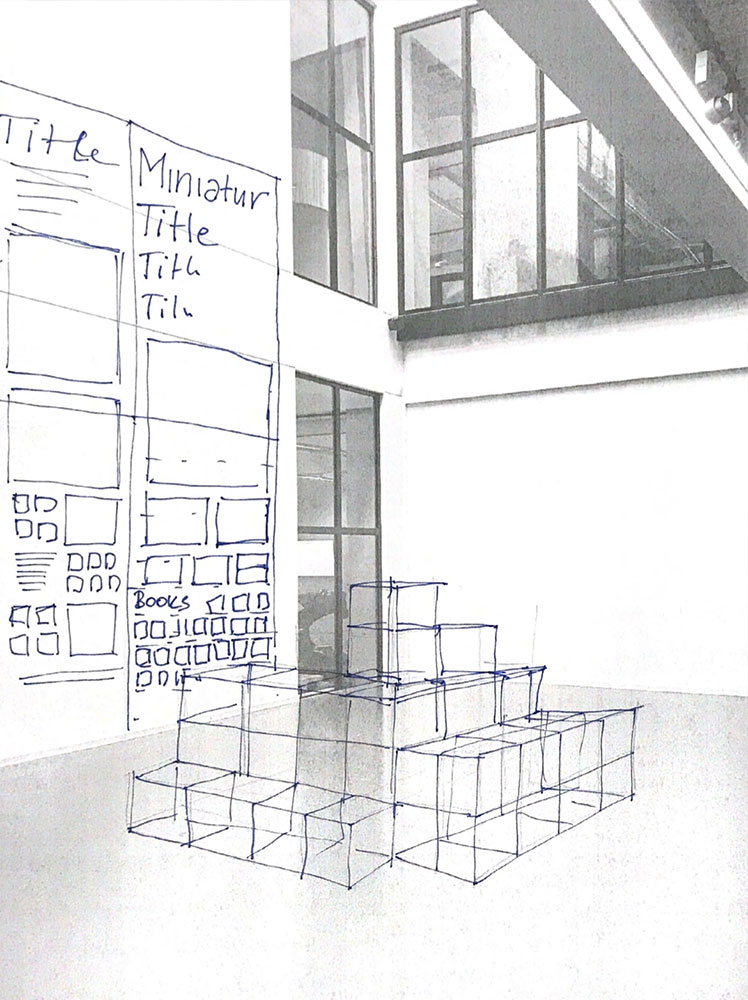 Title
Miniatur
Title
Titl
Books